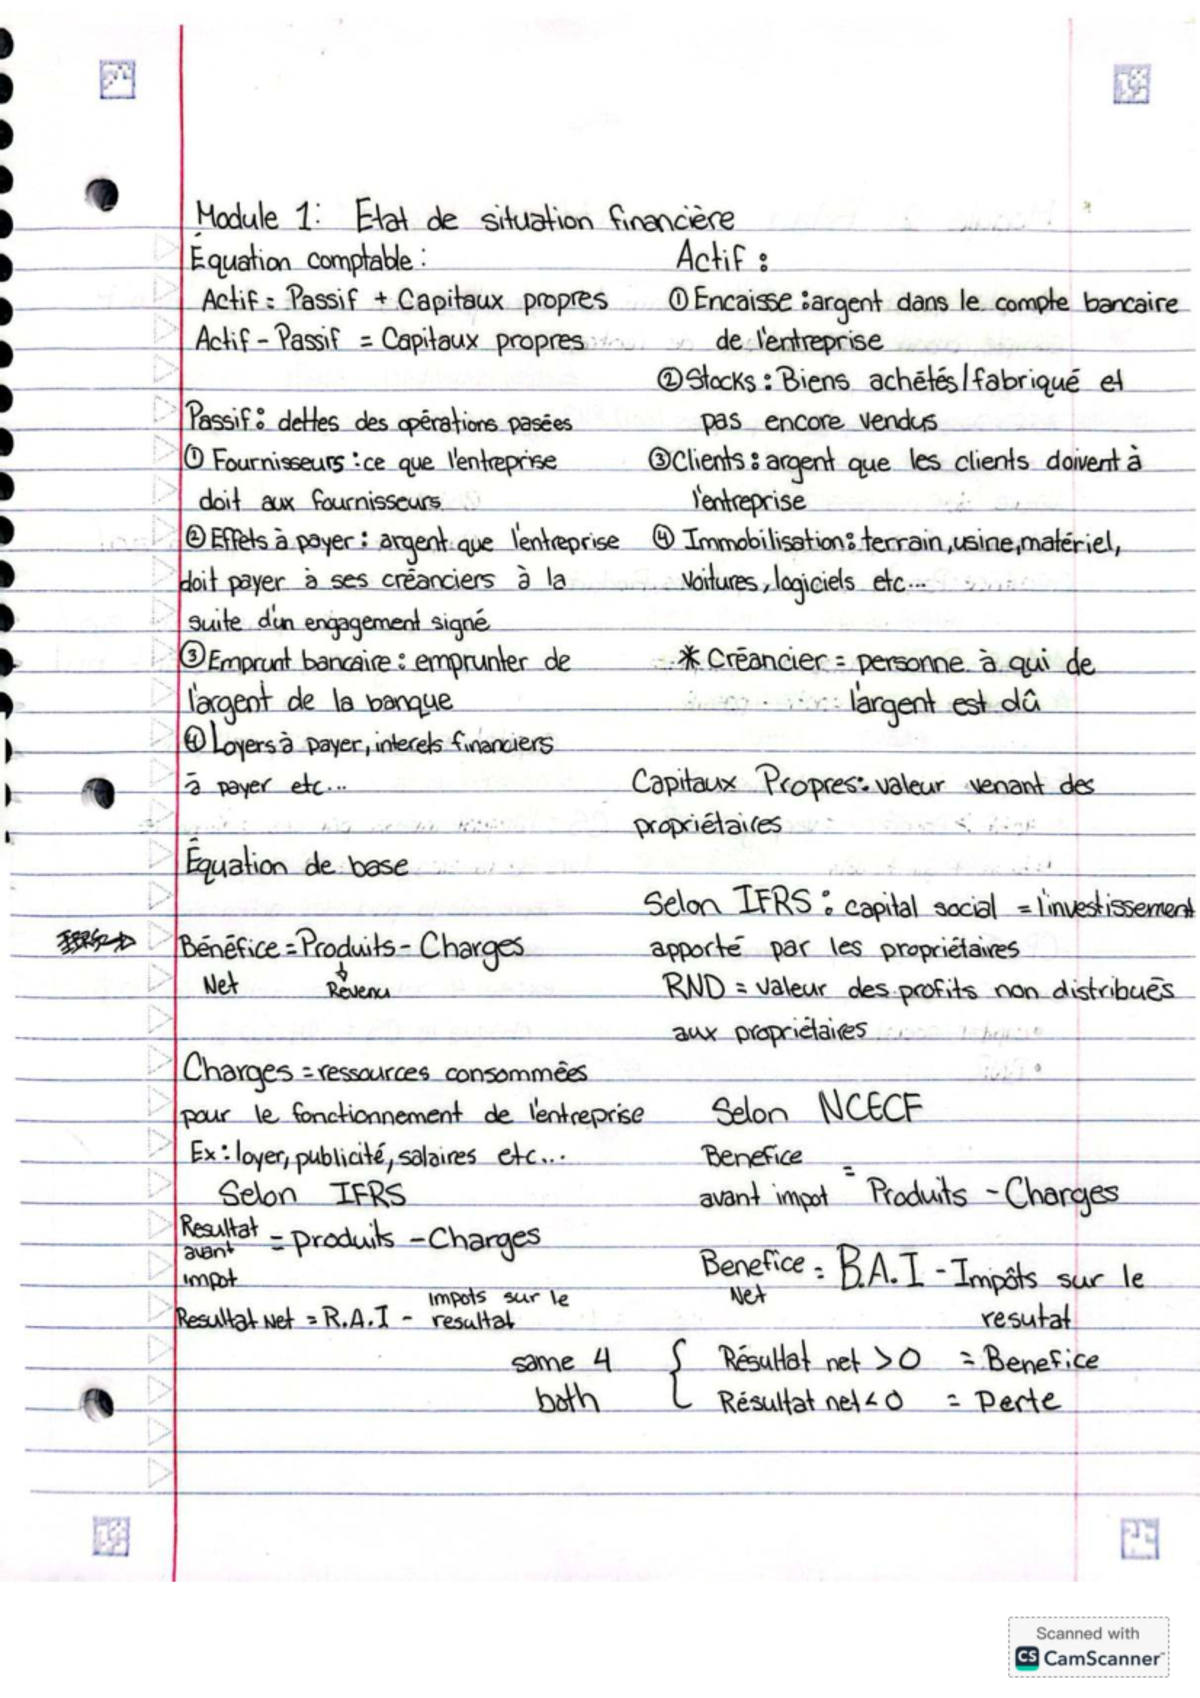 Module 1: Etat de situation financière
Équation comptable:
Actif = Passif + Capitaux propres
Actif - Passif = Capitaux propres
Passif: dettes des opérations pasées
① Fournisseurs: ce que l'entreprise
doit aux fournisseurs
② Effets à payer: argent que l'entreprise
doit payer à ses créanciers à la
suite d'un engagement signé
③ Emprunt bancaire: emprunter de
l'argent de la banque
④ Loyers à payer, interets financiers
à payer etc...
Équation de base
Bénéfice = Produits - Charges
Net Revenu
Charges = ressources consommées
pour le fonctionnement de l'entreprise
Ex: loyer, publicité, salaires etc...
Selon IFRS
Resultat
avant = produits - Charges
impot
Resultat Net = R.A.I - impots sur le
resultat
Actif:
① Encaisse: argent dans le compte bancaire
de l'entreprise
② Stocks: Biens achétés/fabriqué et
pas encore vendus
③ Clients: argent que les clients doivent à
l'entreprise
④ Immobilisation: terrain, usine, matériel,
voitures, logiciels etc...
* Créancier = personne à qui de
l'argent est dû
Capitaux Propres: valeur venant des
propriétaires
Selon IFRS: capital social = l'investissement
apporté par les propriétaires
RND = valeur des profits non distribués
aux propriétaires
Selon NCECF
Benefice
avant impot = Produits - Charges
Benefice = B.A.I - Impôts sur le
Net resutat
same 4 { Résultat net > 0 = Benefice
both Résultat net < 0 = Perte
Scanned with
CS CamScanner